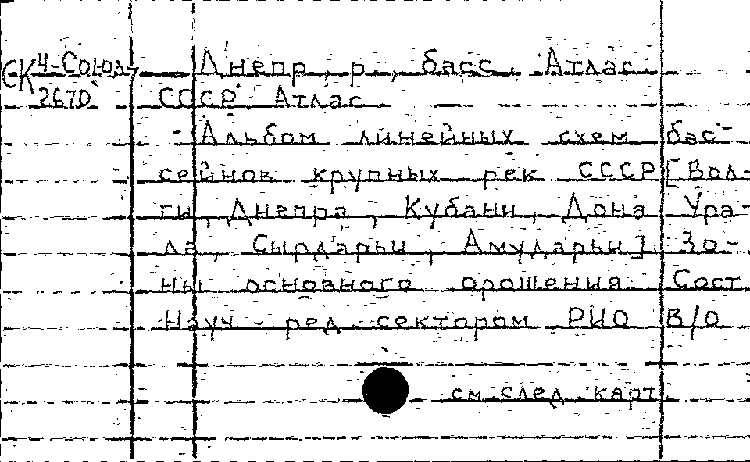 СК 4-Союз
2670
Днепр, р., басс. Атлас
СССР. Атлас
Альбом линейных схем бас-
сейнов крупных рек СССР [Вол-
ги, Днепра, Кубани, Дона Ура-
ла, Сырдарьи, Амударьи] Зо-
ны основного орошения. Сост.
Науч.-ред. сектором РИО В/О
см. след. карт.